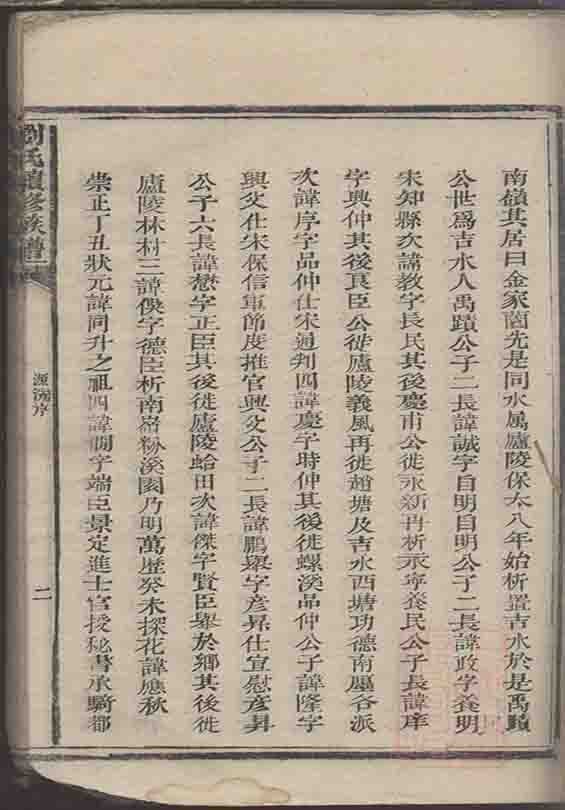 南嶺其居曰金家園先是同水属廬陵保大八年始析置吉水於是禹蹟
公世爲吉水人禹蹟公子二長諱誠字自明自明公子二長諱政字養明
宋知縣次諱教字長民其後慶甫公徙永新再析永寧養民公子長諱序
字興仲其後良臣公徙廬陵義風再徙趙塘及吉水西塘功德南廳各派
次諱序字品仲仕宋通判四諱慶字時仲其後徙螺溪品仲公子諱隆字
興爻仕宋保信軍節度推官興爻公子二長諱鵬舉字彦昇仕宣慰彦昇
公子六長諱懋字正臣其後徙廬陵蛤田次諱傑字賢臣舉於鄉其後徙
廬陵林村三諱俁字德臣析南嶺粉溪園乃明萬歷癸未探花諱應秋
崇正丁丑狀元諱同升之祖四諱
字端臣景定進士官授秘書承騎都
劉氏續修族譜
源流序
二